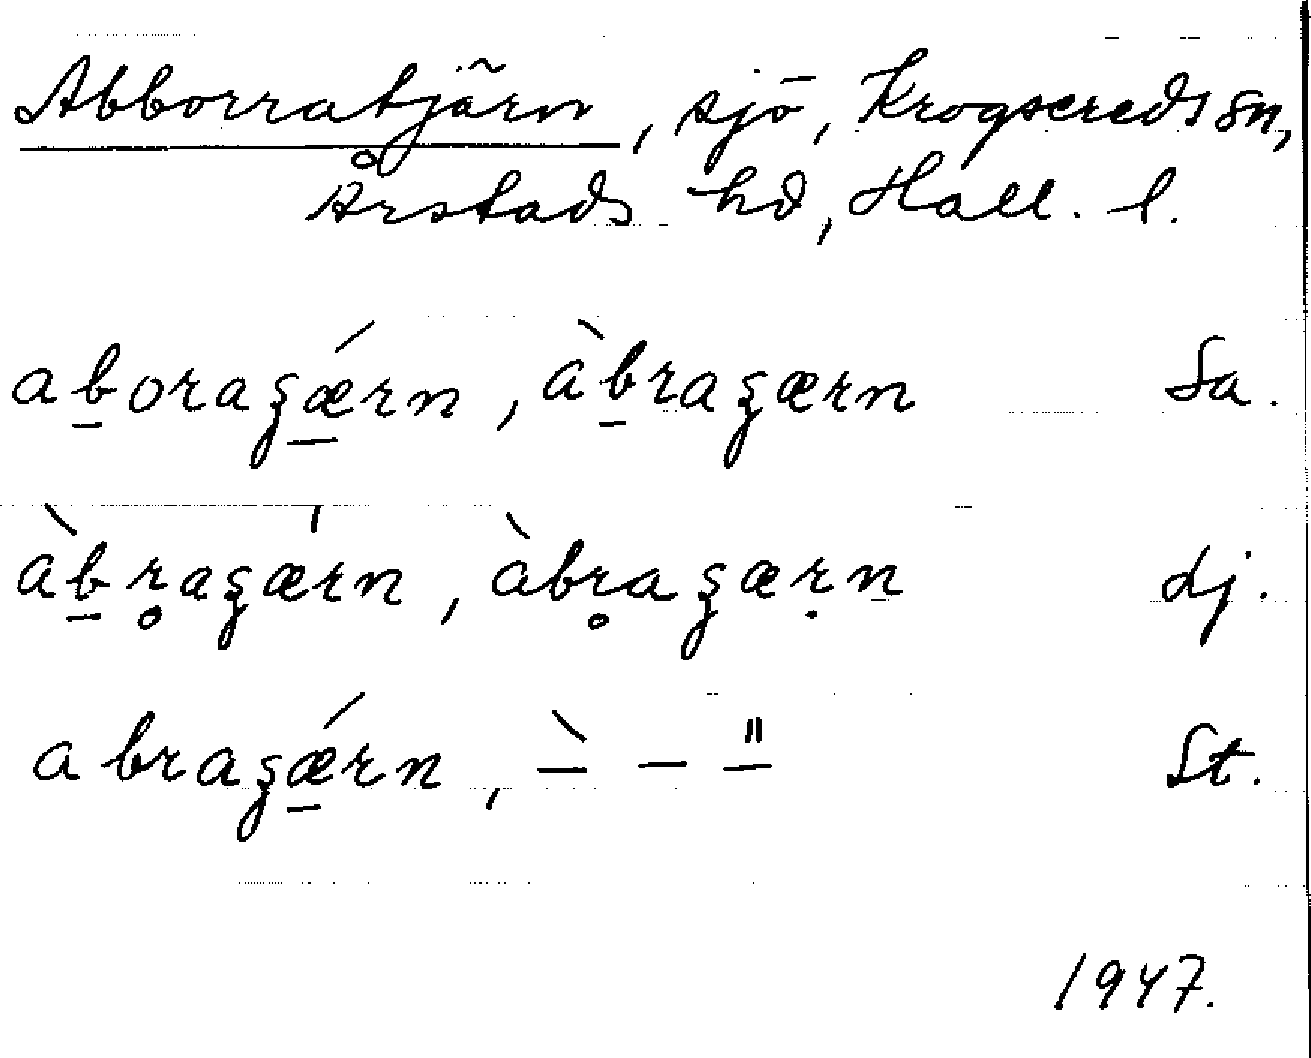 Abborratjärn, sjö, Krogsereds sn,
Årstads hd, Hall. l.
aboraʒǽrn, àbraʒærn Sa.
àbr̥aʒæ̍rn, àbr̥aʒæṛn dj.
abraʒǽrn, ̀— – ̎— St.
1947.